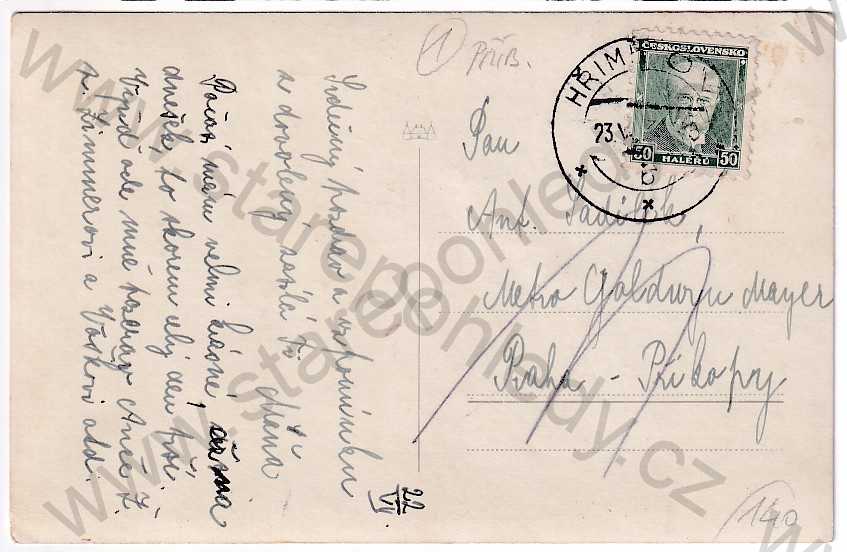 Srdečný pozdrav a vzpomínku
z dovolený zasílá Ti
Mána
Počasí máme velmi krásné, až na
dnešek to skorem celý den prší
Vyřiď ode mne pozdrav Anči Ž.
a Zimmerovi a Vaškovi atd.
22
VI
1
PŘÍB.
HŘIM
23.V
ČESKOSLOVENSKO
50 HALÉŘŮ 50
Pan
Ant. Sadílek,
Metro Goldwyn Mayer
Praha - Příkopy
140
www.stareponohledy.cz